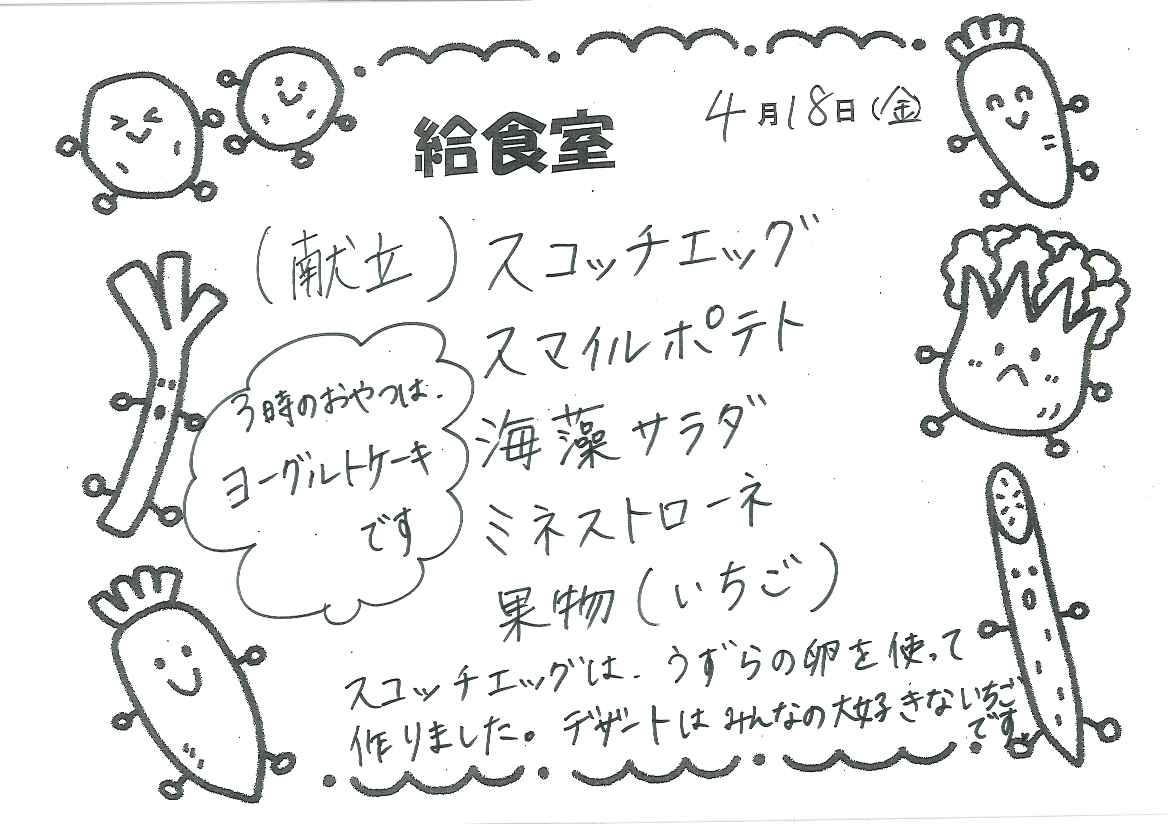 給食室
4月18日(金)
(献立)スコッチエッグ
スマイルポテト
海藻サラダ
ミネストローネ
果物(いちご)
3時のおやつは、
ヨーグルトケーキ
です
スコッチエッグは、うずらの卵を使って
作りました。デザートはみんなの大好きないちご
です。